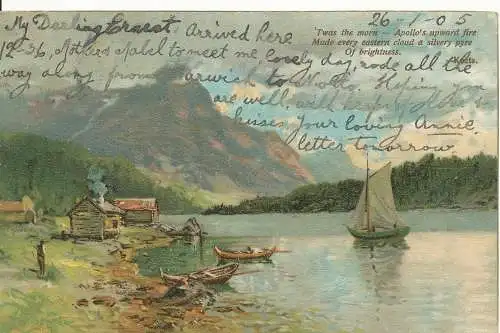 26-1-05
My Darling Ernest Arrived here
12-36, Mothers Mabel to meet me, lovely day, rode all the
way along from arwich to Notto. Hoping you
are well, will
kisses Your loving Annie.
letter tomorrow
'Twas the morn — Apollo's upward fire
Made every eastern cloud a silvery pyre
Of brightness.
Keats.